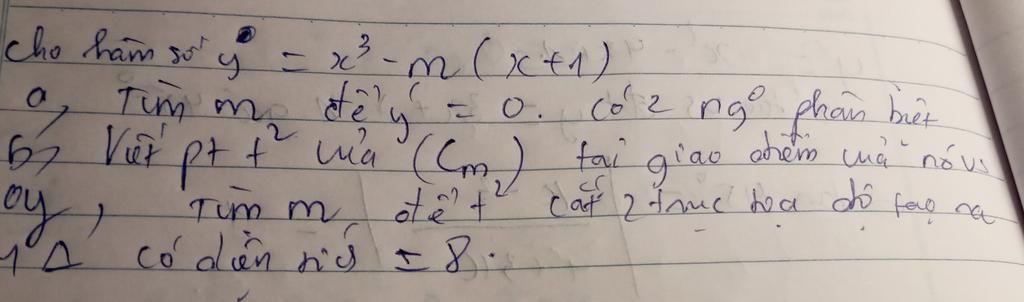 Cho hàm số y = x³ - m(x+1)
a, Tìm m để y' = 0. có 2 ngº phân biệt
b, Viết pt t² của (Cm) tại giao điểm của nó vs
oy, Tìm m để t² cắt 2 trục tọa độ tạo ra
1 Δ có diện tích = 8.